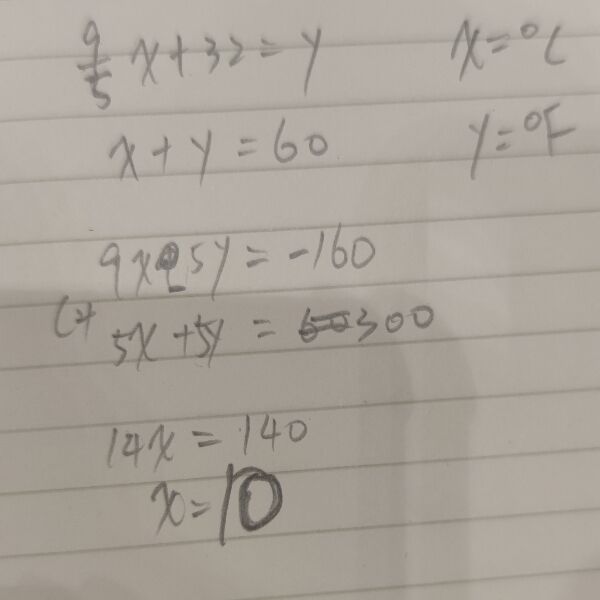 9/5 x + 32 = y x = °C
x + y = 60 y = °F
9x - 5y = -160
(+ 5x + 5y = 300
14x = 140
x = 10